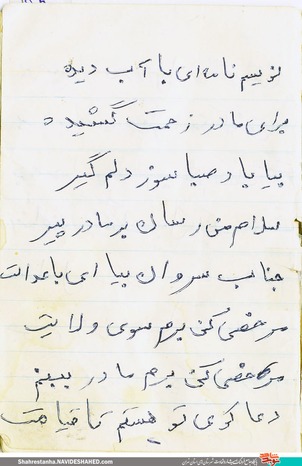 نویسم نامه‌ای با آب دیده
برای مادر زحمت کشیده
بیا باد صبا سوز دلم گیر
سلام من رسان بر مادر پیر
جناب سروان بیا ای باعدالت
مرخصی کنی برم سوی ولایت
مرخصی کنی برم مادر ببینم
دعا گوی تو هستم تا قیامت
Shahrestanha.NAVIDESHAHED.com